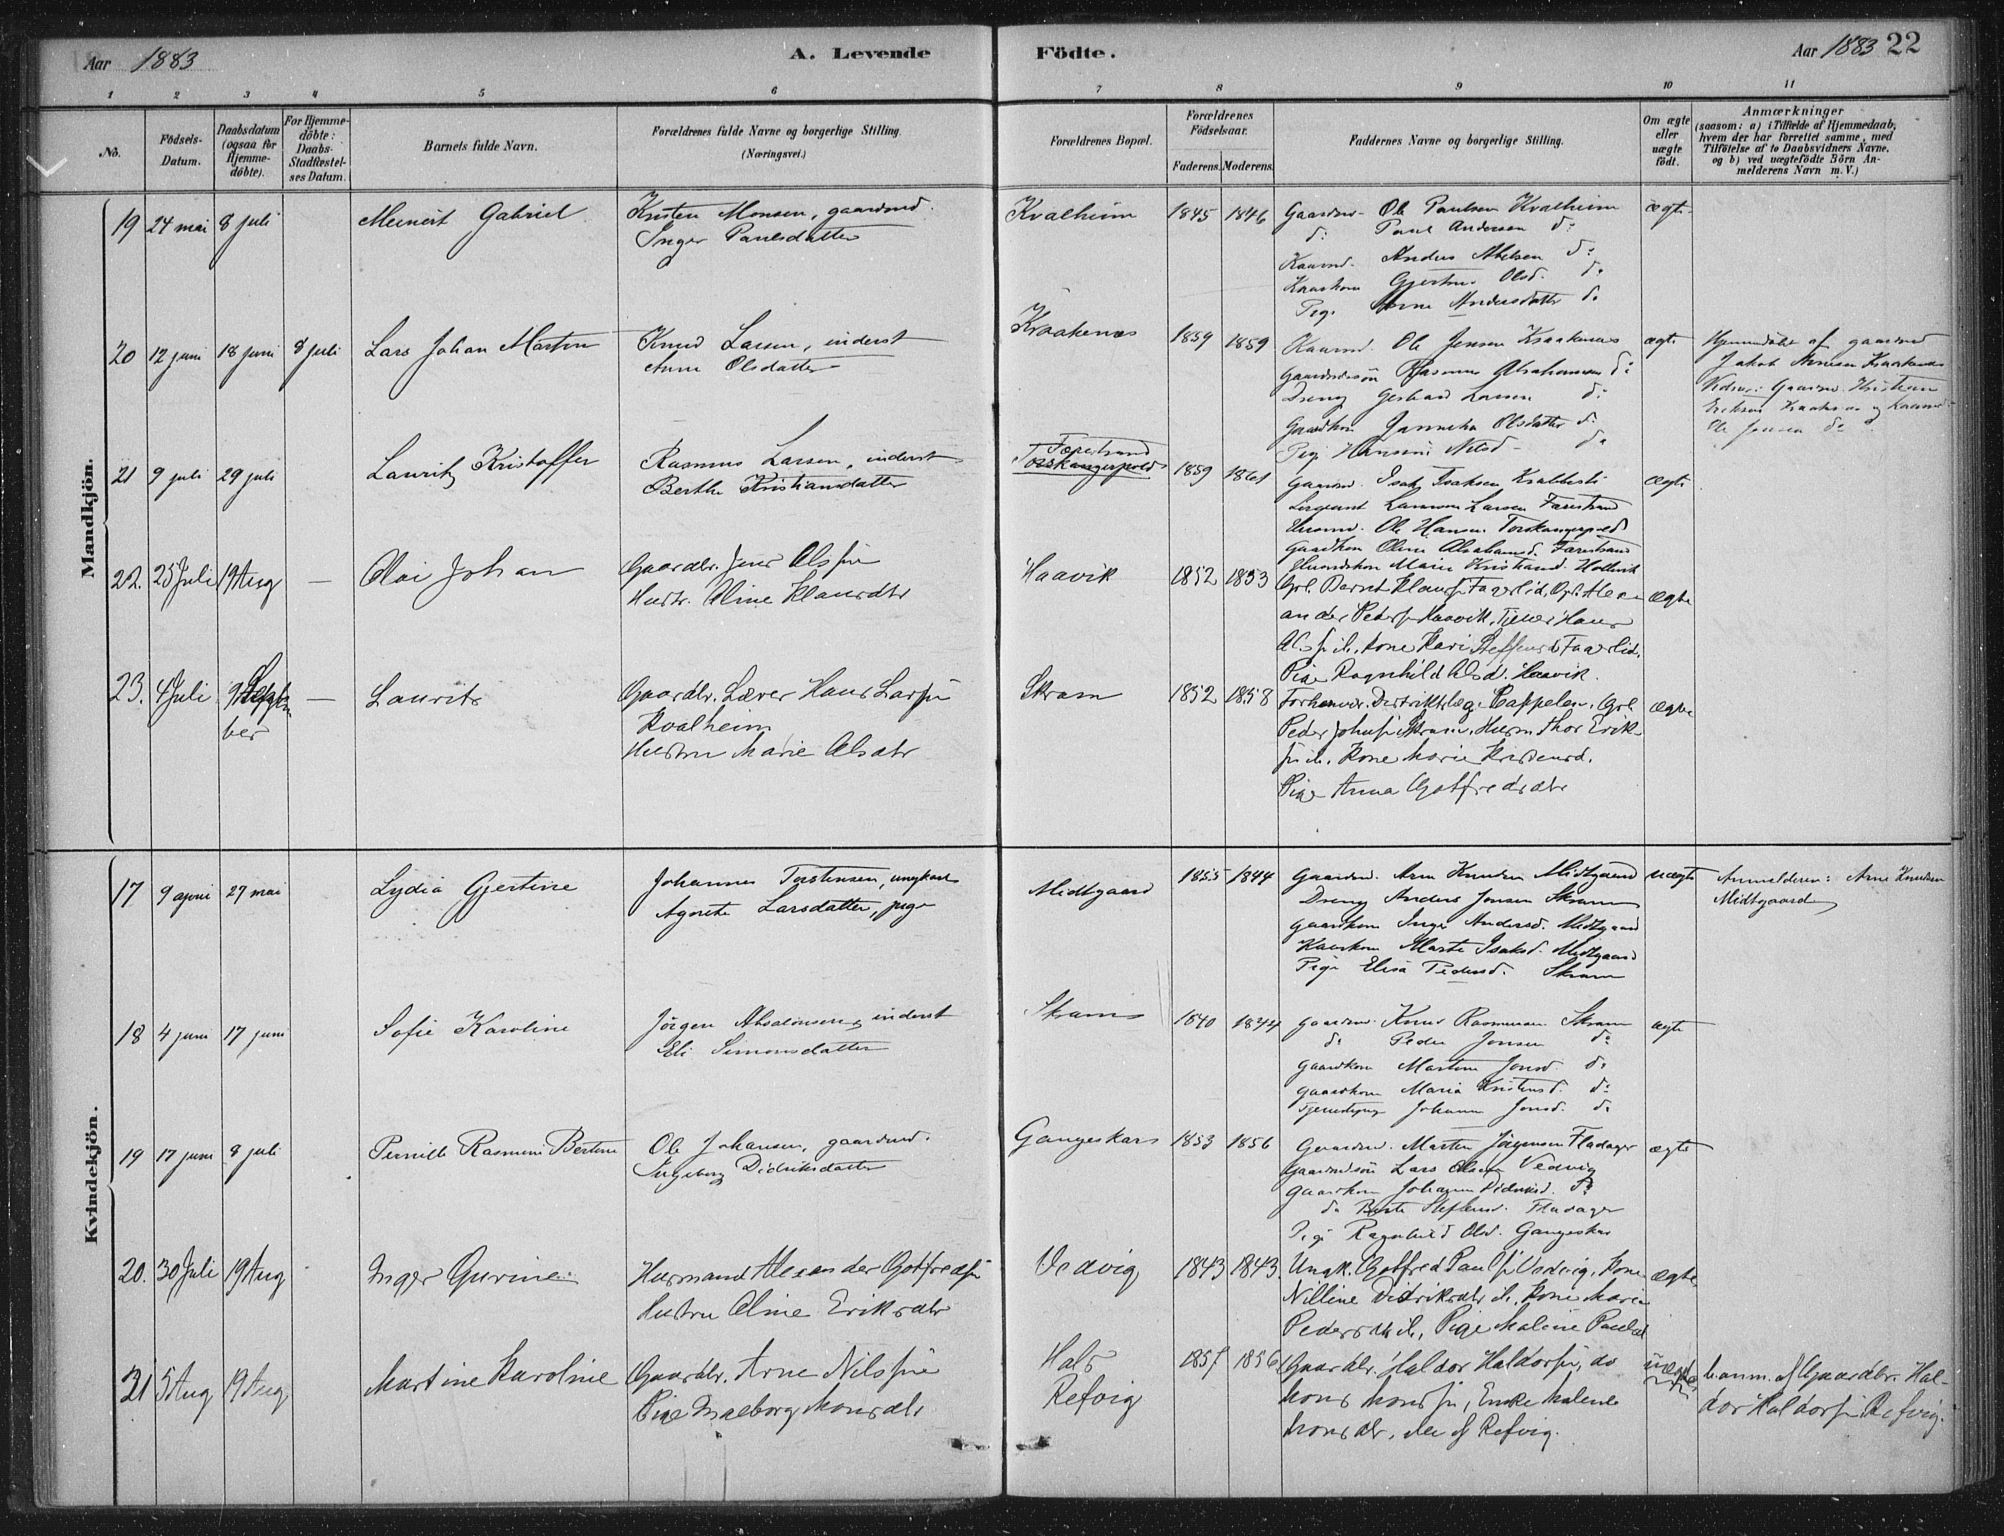 Aar 1883
A. Levende
Födte.
Aar 1883 22
1 2 3 4 5 6 7 8 9 10 11
No.
Födsels-
Datum.
Daabsdatum
(ogsaa for
Hjemme-
döbte).
For Hjemme-
döbte:
Daabs-
Stadfæstel-
ses Datum.
Barnets fulde Navn.
Forældrenes fulde Navne og borgerlige Stilling.
(Næringsvei.)
Forældrenes Bopæl.
Forældrenes
Födselsaar.
Faderens. Moderens.
Faddernes Navne og borgerlige Stilling.
Om ægte
eller
uægte
födt.
Anmærkninger
(saasom: a) i Tilfælde af Hjemmedaab,
hvem der har forrettet samme, med
Tilföielse af to Daabsvidners Navne,
og b) ved uægtefödte Börn An-
melderens Navn m. V.)
Mandkjön.
19 24 mai 8 juli
Meinert Gabriel
Kristen Monsen, gaardmd.
Inger Paulsdatter
Kvalheim
1845 1846
Gaardmd. Ole Paulsen Kvalheim
d: Paul Andersen d:
Kaarmd. Anders Abelsen d:
Kaarkone Gjertrud Olsd. d:
Pige Anne Andersdatter d:
ægte
20 12 juni 18 juni 8 juli
Lars Johan Martin
Knud Larsen, inderst
Anne Olsdatter
Kraakenæs
1859 1859
Kaarmd. Ole Jensen Kraakenæs
Gaardmdssön Rasmus Abrahamsen d:
Dreng Gerhard Larsen d:
Gaardkone Jannecke Olsdatter d:
Pige Hansine Nilsd. d:
ægte
Hjemmedöbt af gaardmd
Jakob Kraakenæs
Vidner: Gaardmd. Kristian
Eriksen Kraakenæs og Kaarmd.
Ole Jensen d:
21 9 juli 29 juli
Lauritz Kristoffer
Rasmus Larsen, inderst
Berthe Kristiansdatter
Færestrand
Torskangerpold
1859 1861
Gaardmd. Isak Isaksen Krabbesti
Sergeant Larsen Færestrand
Ole Hansen Torskangerpold
Gaardkon Oline Abrahamsd. Færestrand
Marie Kristiansd. Holevik
ægte
22. 25 Juli 19 Aug —
Olai Johan
Gaardbr. Jens Olssøn
Hustr. Oline Klausdtr
Haavik
1852 1853
Gbr. Bernt Klauss. Fagerlid, Gbr. Alex-
ander Peders. Haavik, Tjener Hans
Ols. ib, Kone Kari Steffensd. Fagerlid,
Pige Ragnhild Olsd. Haavik.
ægte
23. 4 Juli 9 Septem
ber —
Laurits
Gaardbr. Lærer Hans Larss.
Kvalheim
Hustru Marie Olsdtr
Skram
1852 1858
Forhenvær. Distriktslæge Cappelen, Gbr.
Peder Johns. Skram, Husm. Thor Erik-
s. ib. Kone Marie Kristensd.
Pige Anna Gotfredsdtr
ægte
Kvindekjön.
17 9 april 27 mai
Lydia Gjertine
Johannes Torstensen, ungkarl
Agnete Larsdatter, pige
Midtgaard
1855 1844
Gaardmd. Arne Knudsen Midtgaard
Dreng Anders Jonsen Skram
gaardkone Inger Andersd. Midtgaard
Kaarkone Marte Isaksd. Midtgaard
Pige Elisa Pedersd. Skram
uægte
Anmelderen: Arne Knudsen
Midtgaard
18 4 juni 17 juni
Sofie Karoline
Jörgen Absalonsen, inderst
Eli Simonsdatter
Skram
1840 1844
gaardmd. Knud Rasmussen Skram
d: Peder Jonsen d:
gaardkone Martine Jonsd. d:
gaardkone Maria Kristensd. d:
Tjenestepige Johanne Jonsd. d:
ægte
19 17 juni 8 juli
Pernille Rasmine Bertine
Ole Johansen, gaardmd.
Ingeborg Didriksdatter
Gangeskar
1853 1856
Gaardmd. Martin Jörgensen Fladager
Gaardmdssön Lars Olsen Vedvig
gaardkone Johanne Didriksd. d:
d: Berte Steffensd. Fladager
Pige Ragnhild Olsd. Gangeskar
ægte
20. 30 Juli 19 Aug
Inger Gurine
Husmand Alexander Gotfreds.
Hustru Oline Eriksdtr
Vedvig
1843 1843.
Ungk. Gotfred Pauls. Vedvig, Kone
Nilline Didriksdtr ib, Kone Marie
Pedersd. ib, Pige Maline Paulsd.
ægte
21 5 Aug 19 Aug
Martine Karoline
Gaardbr. Arne Nilssøn
Pige Ingeborg Monsdtr
Hals
Refvig
1857 1856
Gaardbr. Haldor Haldors., do
Mons Monss., Enke Malene
Monsdtr. alle af Refvig.
uægte
b. anm. af Gaardbr. Hal-
dor Haldors. Refvig.